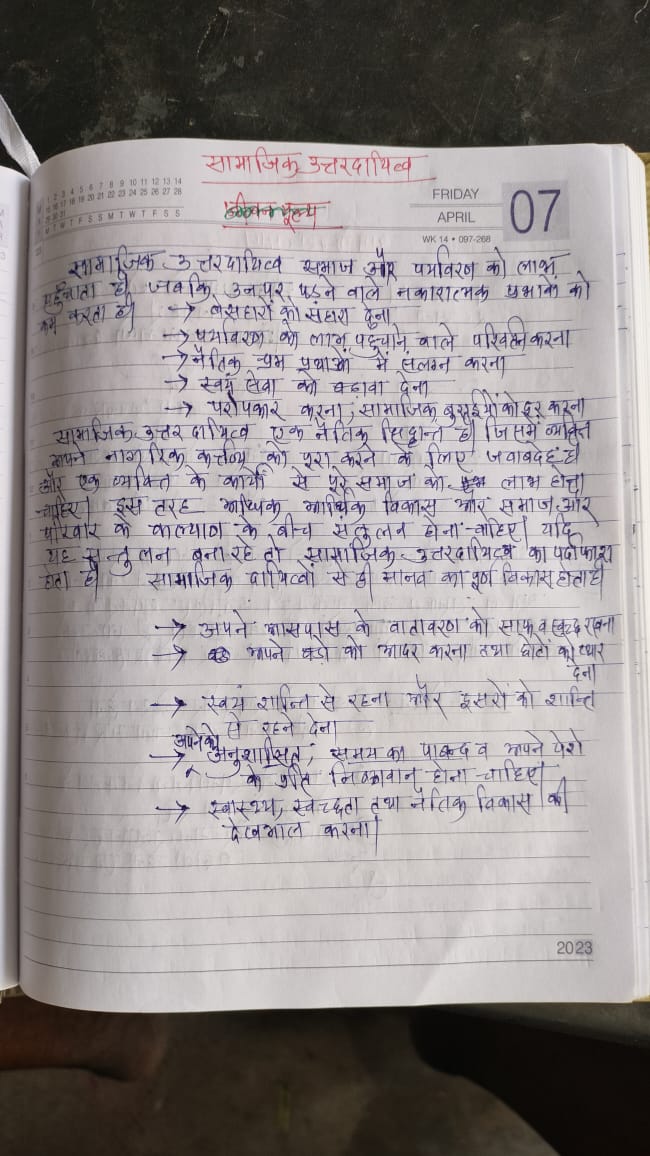 सामाजिक उत्तरदायित्व
1 2 3 4 5 6 7 8 9 10 11 12 13 14
15 16 17 18 19 20 21 22 23 24 25 26 27 28
29 30 31
M T W T F S S M T W T F S S
FRIDAY
APRIL
07
WK 14 • 097-268
जीवन मूल्य
सामाजिक उत्तरदायित्व समाज और पर्यावरण को लाभ
पहुँचाता है। जबकि उनपर पड़ने वाले नकारात्मक प्रभाव को
कम करता है।
→ बेसहारों को सहारा देना
→ पर्यावरण को लाभ पहुचाने वाले परिवर्तन करना
→ नैतिक श्रम प्रथाओं में संलग्न करना
→ स्वयं सेवा को बढावा देना
→ परोपकार करना, सामाजिक बुराईयों को दूर करना
सामाजिक उत्तरदायित्व एक नैतिक सिद्धान्त है। जिसमें व्यक्ति
अपने नागरिक कर्त्तव्य को पूरा करने के लिए जवाबदेह है।
और एक व्यक्ति के कार्यों से पूरे समाज को लाभ होना
चाहिए। इस तरह आर्थिक विकास और समाज और
परिवार के कल्याण के बीच संतुलन होना चाहिए। यदि
यह सन्तुलन बना रहे तो सामाजिक उत्तरदायित्व का पर्दाफाश
होता है। सामाजिक दायित्वों से ही मानव का पूर्ण विकास होता है।
→ अपने आसपास के वातावरण को साफ व स्वच्छ रखना
→ अपने बड़ों का आदर करना तथा छोटों को प्यार
देना
→ स्वयं शान्ति से रहना और दूसरों को शान्ति
से रहने देना
अपने को
→ अनुशासित, समय का पाबन्द व अपने पेशे
के प्रति निष्ठावान होना चाहिए।
→ स्वास्थ्य, स्वच्छता तथा नैतिक विकास की
देखभाल करना।
2023